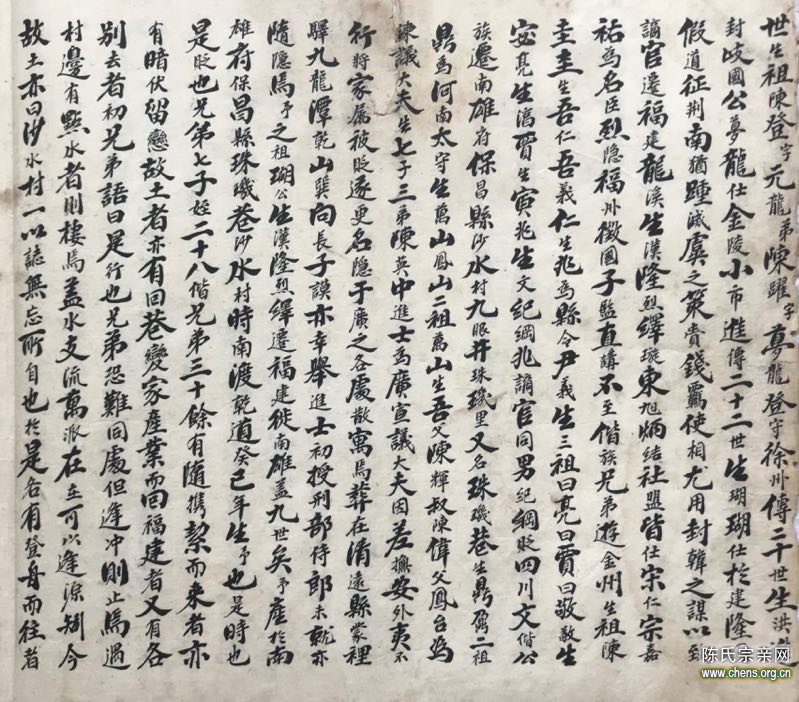 世生祖陳登字元龍弟陳躍字夢龍登守徐州傳二十世生洪進
封岐國公夢龍仕金陵小市進傳二十二世生瑚瑚仕於建隆
假道征荆南猶踵滅虞之策貴錢覊使相尤用封韓之謀以致
謫官遷福建龍溪生漢隆烈繹璇東旭炳结社盟皆仕宋仁宗嘉
祐為名臣烈隐福州徵國子監直講不至偕族兄弟遊金州生祖陳
圭圭生吾仁吾義仁生兆為縣令尹義生三祖曰亮曰賈曰敬敬生
安亮生滔賈生寅兆生文紀綱兆謫官同男紀綱眨四川文偕公
族遷南雄府保昌縣沙水村九眼井珠璣里又名珠璣巷生鼎鼐二祖
鼎為河南太守生萬山鳳山二祖萬山生吾父陳輝叔陳偉父鳳台為
諫議大夫生七子三弟陳英中進士為廣宣議大夫因差撫安外夷不
行將家属被眨逐更名隠于廣之各處散寓焉葬在清遠縣蒙裡
驛九龍潭乾山巽向長子謨亦幸舉進士初授刑部侍郎未就亦
隨隠焉予之祖瑚公生漢隆烈繹遷福建徙南雄盖九世矣予產於南
雄府保昌縣珠璣巷沙水村時南渡乾道癸己年生予也是時也
是眨也兄弟七子姪二十八偕兄弟三十餘有隨携挈而来者亦
有暗伏留戀故土者亦有回巷變家產業而回福建者又有各
别去者初兄弟語曰是行也兄弟恐難同處但逢冲則止焉遇
村邊有點水者則棲焉盖水支流萬派在在可以逢源矧今
故土亦曰沙水村一以誌無忘所自也於是各有登舟而往者
陈氏宗亲网
www.chens.org.cn